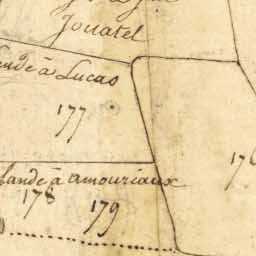 Jouatel
à Lucas
177
lande à amouriaux
178
179